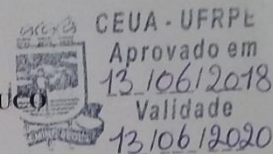 CEUA - UFRPE
Aprovado em
13/06/2018
UCO
Validade
13/06/2020